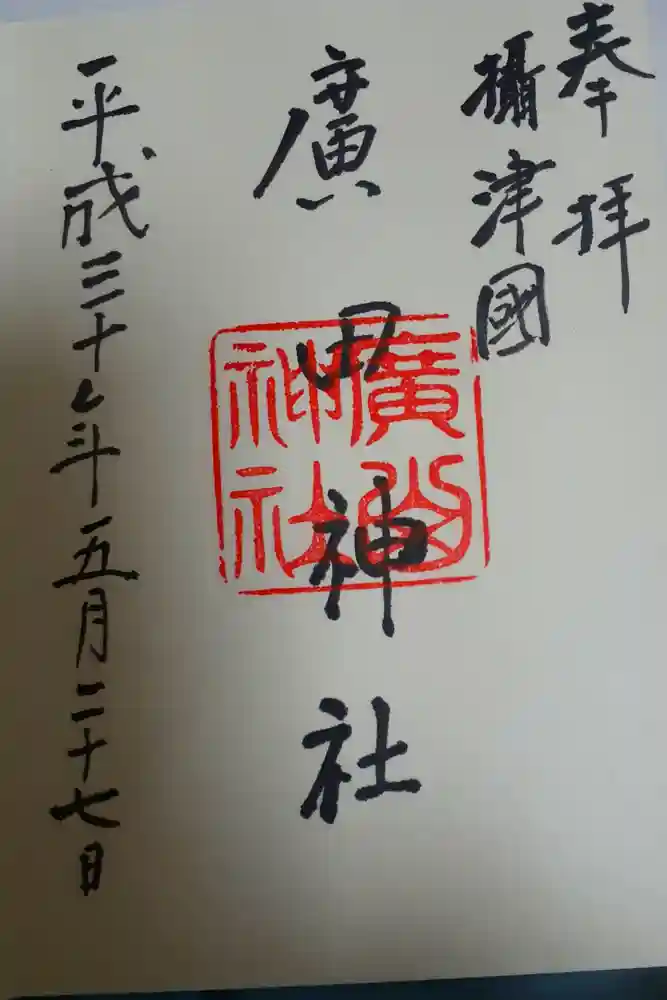 奉拝
攝津國
廣田神社
平成三十年五月二十七日
廣
神社